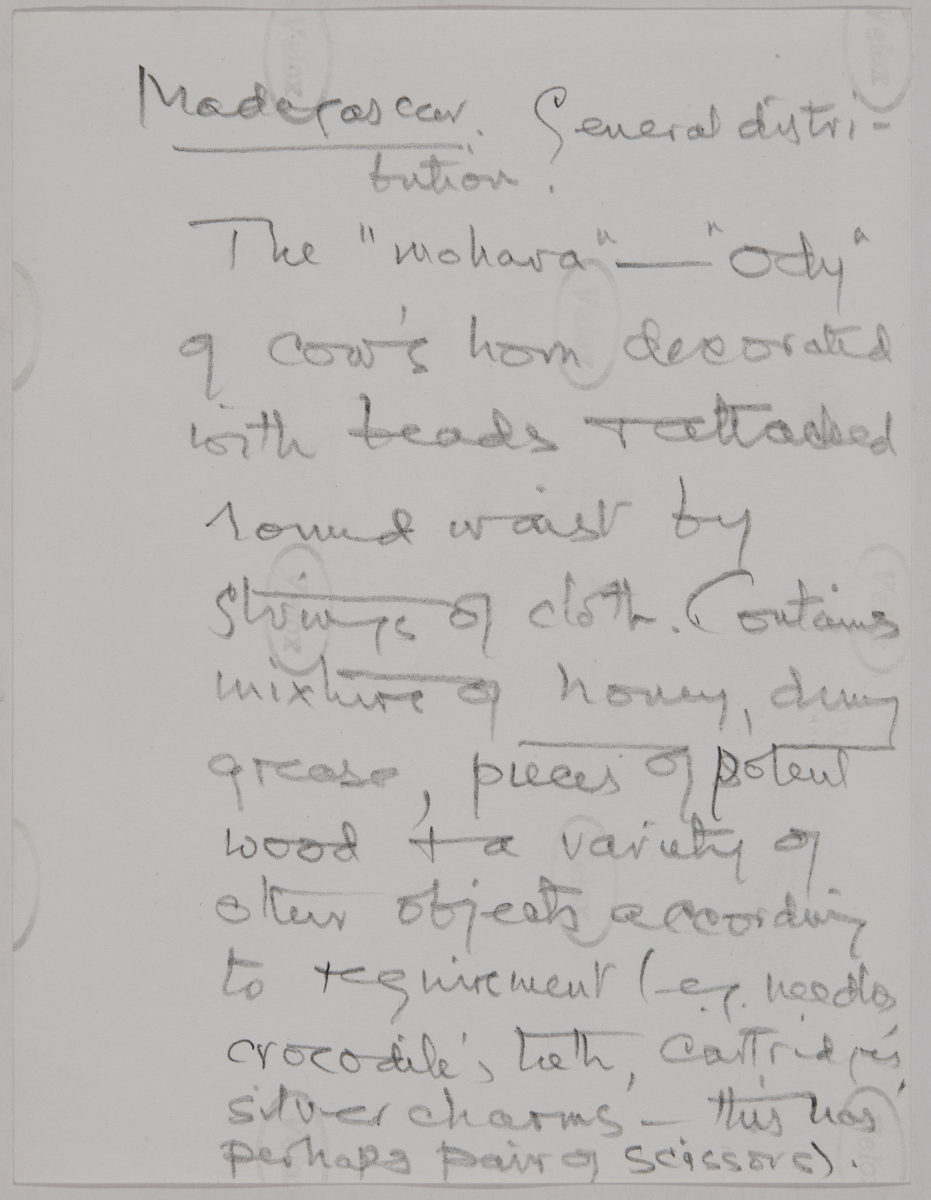 Madagascar. General distri-
bution.
The "mohara" — "Ody"
of cow's horn decorated
with beads & attached
round waist by
strings of cloth. Contains
mixture of honey, dung
grease, pieces of potent
wood + a variety of
other objects according
to requirement (e.g. needles,
crocodile's teeth, cartridges,
silver charms – this has
perhaps pair of scissors).
Velox